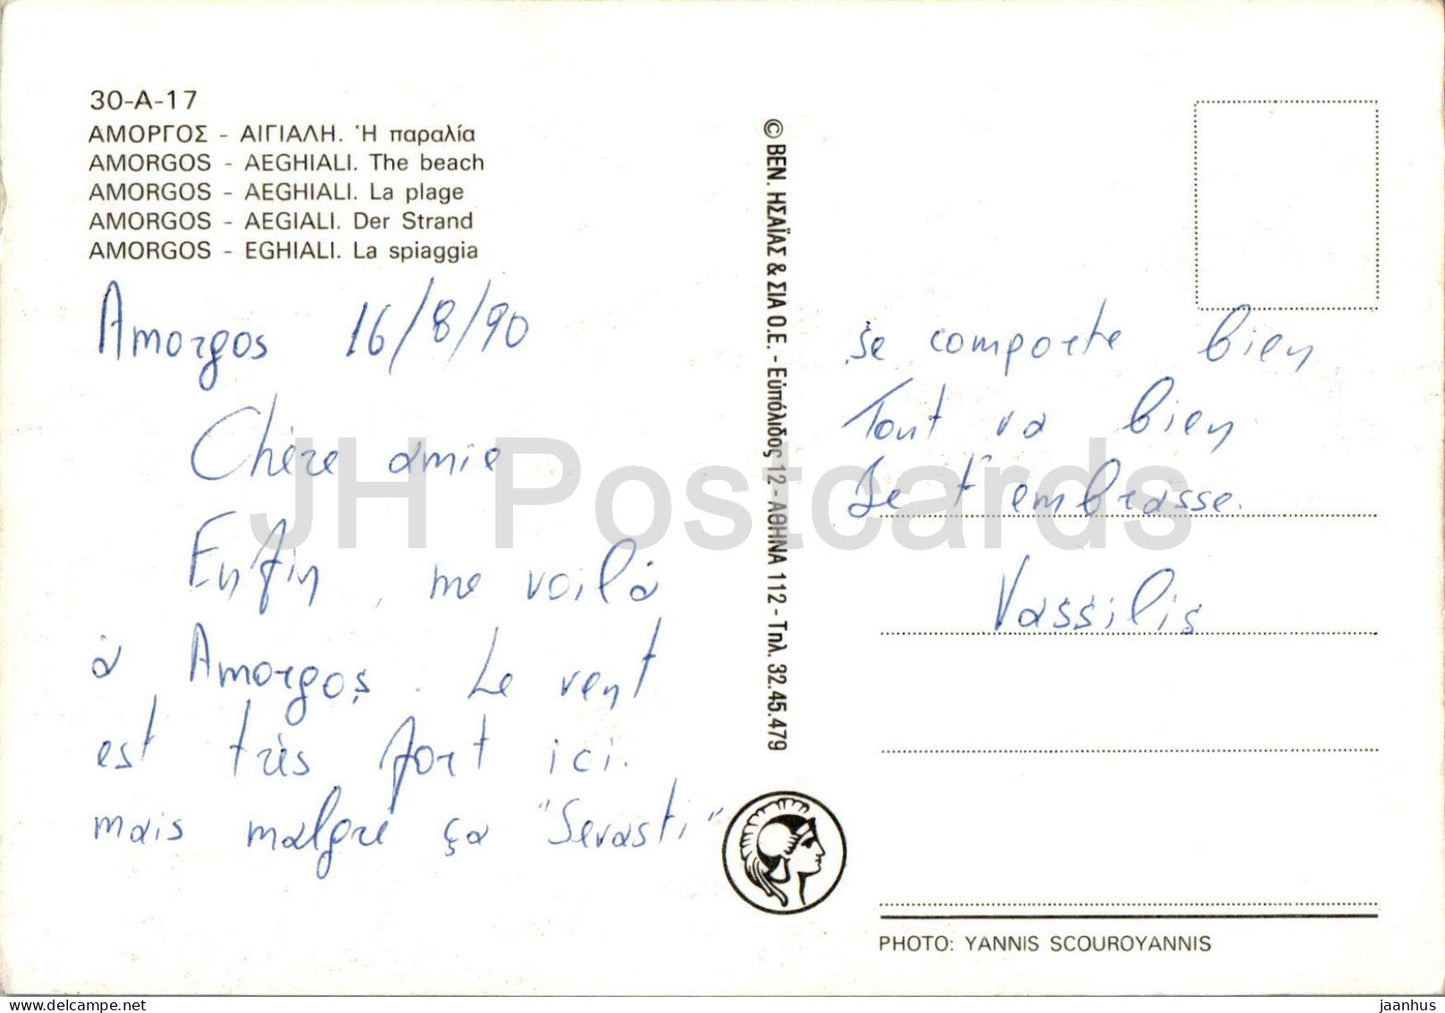 30-A-17
ΑΜΟΡΓΟΣ - ΑΙΓΙΑΛΗ. Ἡ παραλία
AMORGOS - AEGHIALI. The beach
AMORGOS - AEGHIALI. La plage
AMORGOS - AEGIALI. Der Strand
AMORGOS - EGHIALI. La spiaggia
Amorgos 16/8/90
Chère amie
Enfin, me voilà
à Amorgos. Le vent
est très fort ici.
mais malgré ça "Sevasti"
© ΒΕΝ. ΗΣΑΪΑΣ & ΣΙΑ Ο.Ε. - Εὐπόλιδος 12 - ΑΘΗΝΑ 112 - Τηλ. 32.45.479
se comporte bien
Tout va bien
Je t'embrasse.
Vassilis
PHOTO: YANNIS SCOUROYANNIS
JH Postcards
jaanhus